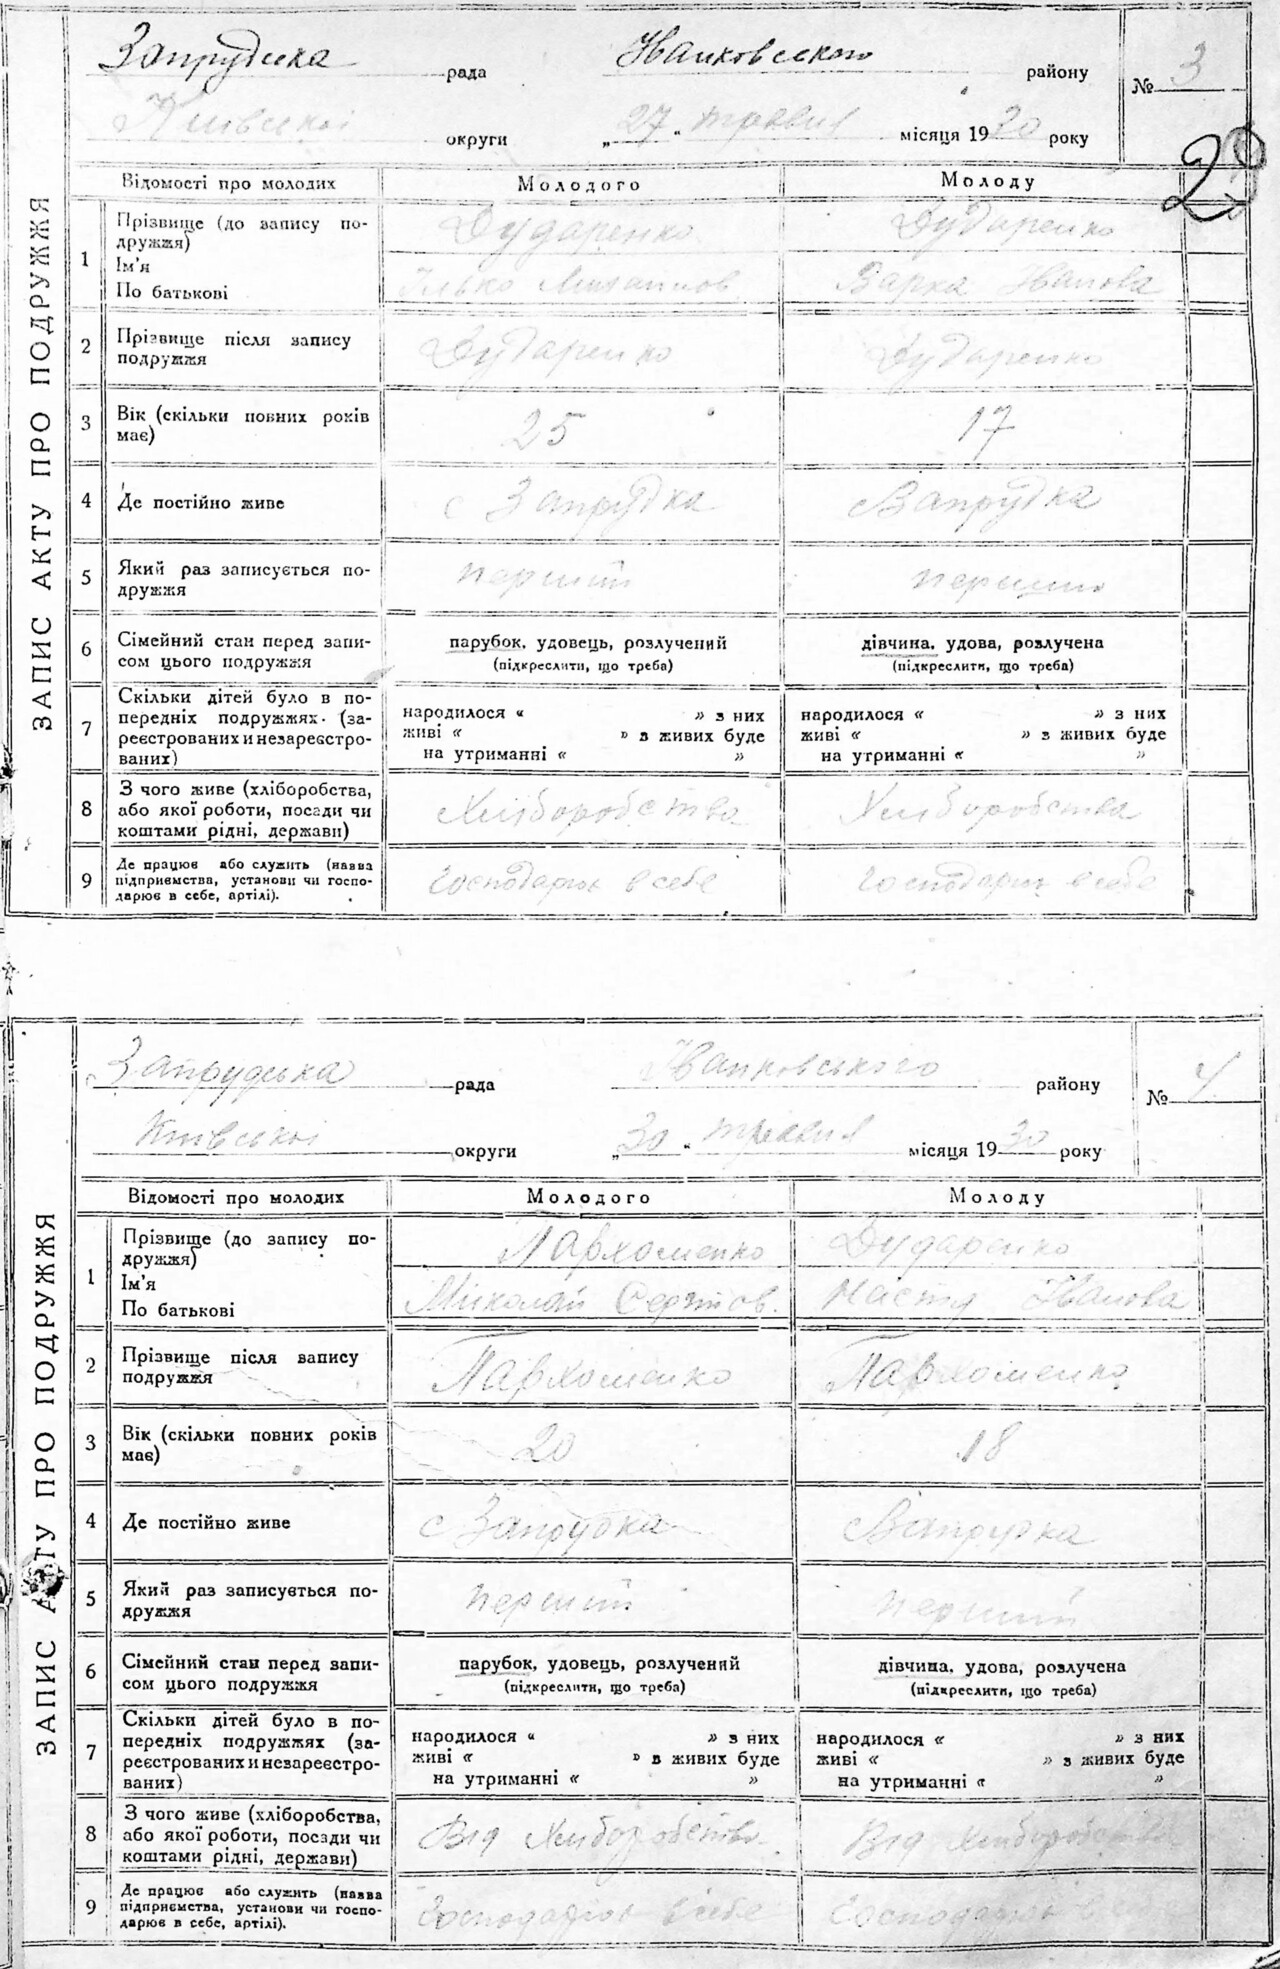 Запрудська рада Іванковського району № 3
Київської округи „27“ травня місяця 1930 року
29
ЗАПИС АКТУ ПРО ПОДРУЖЖЯ
Відомості про молодих Молодого Молоду
1 Прізвище (до запису по-
дружжя) Дударенко Дударенко
Ім'я
По батькові Ілько Варка Іванова
2 Прізвище після запису
подружжя Дударенко Дударенко
3 Вік (скільки повних років
має) 25 17
4 Де постійно живе с Запрудка с Запрудка
5 Який раз записується по-
дружжя перший перший
6 Сімейний стан перед запи-
сом цього подружжя парубок, удовець, розлучений (підкреслити, що треба) дівчина, удова, розлучена (підкреслити, що треба)
7 Скільки дітей було в по-
передніх подружжях (за-
реєстрованих и незареєстро-
ваних)
народилося « » з них народилося « » з них
живі « » в живих буде живі « » з живих буде
на утриманні « » на утриманні « »
8 З чого живе (хліборобства,
або якої роботи, посади чи
коштами рідні, держави) Хліборобства Хліборобства
9 Де працює або служить (назва
підприємства, установи чи госпо-
дарює в себе, артілі). Господарює в себе Господарює в себе
Запрудська рада Іванковського району № 4
Київської округи „30“ травня місяця 1930 року
ЗАПИС АКТУ ПРО ПОДРУЖЖЯ
Відомості про молодих Молодого Молоду
1 Прізвище (до запису по-
дружжя) Пархоменко Дударенко
Ім'я
По батькові Миколай Сергіїов. Настя Іванова
2 Прізвище після запису
подружжя Пархоменко Пархоменко
3 Вік (скільки повних років
має) 20 18
4 Де постійно живе с Запрудка с Запрудка
5 Який раз записується по-
дружжя перший перший
6 Сімейний стан перед запи-
сом цього подружжя парубок, удовець, розлучений (підкреслити, що треба) дівчина, удова, розлучена (підкреслити, що треба)
7 Скільки дітей було в по-
передніх подружжях (за-
реєстрованих и незареєстро-
ваних)
народилося « » з них народилося « » з них
живі « » в живих буде живі « » з живих буде
на утриманні « » на утриманні « »
8 З чого живе (хліборобства,
або якої роботи, посади чи
коштами рідні, держави) Від Хліборобства Від Хліборобства
9 Де працює або служить (назва
підприємства, установи чи госпо-
дарює в себе, артілі). Господарює в себе Господарює в себе